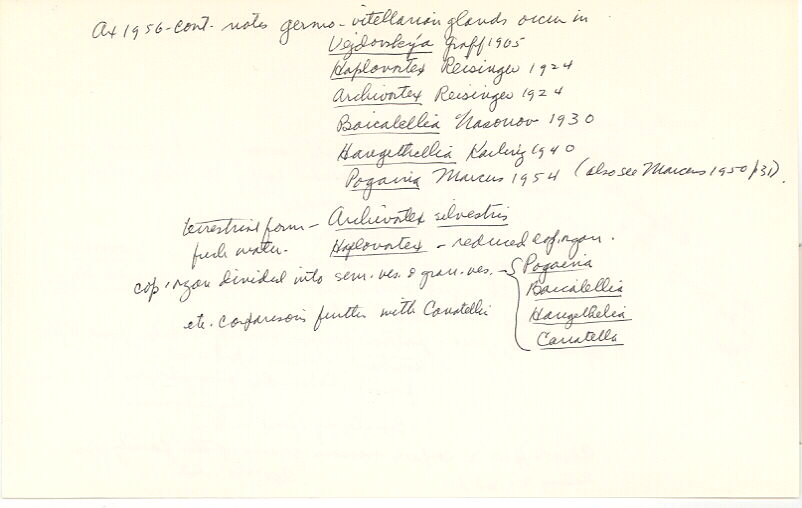 Ax 1956 - cont. notes germo-vitellarian glands occur in
Vejdovskya Graff 1905
Haplovortex Reisinger 1924
Archivortex Reisinger 1924
Baicalellia Nasonov 1930
Hangethellia Karling 1940
Pogaina Marcus 1954 (also see Marcus 1950 p31).
terrestrial form - Archivortex silvestris
fresh water. Haplovortex - reduced cop. organ.
cop. organ divided into sem. ves. & gran. ves. - { Pogaina
Baicalellia
Hangethelia
Canetella
etc. comparisons further with Canetellia